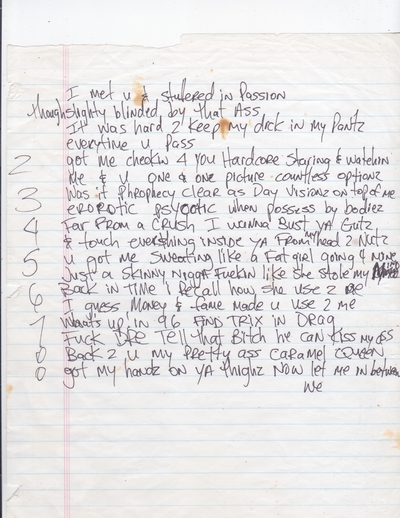 I met u & stutered in Passion
though slighty blinded by that Ass
It was hard 2 keep my dick in my Pantz
everytime u pass
2 got me checkin 4 you Hardcore staring & watchin
me & u one & one picture countless optionz
3 Was it Phrophecy clear as Day Visionz on top of me
erorotic psycotic when possess by bodiez
4 Far From a crush I wanna Bust ya Gutz
& touch everthing inside ya From my head 2 Nutz
5 u got me sweating like a Fat girl going 4 mine
Just a skinny Nigga Fuckin like she stole my
6 Back in time I recall how she use 2 be
I guess Money & fame made u use 2 me
7 Whats up in 96 FIND TRIX in DRAG
Fuck DRE Tell that Bitch he can Kiss my ass
Back 2 u my pretty ass caramel QUEEN
got my handz on ya thighz Now let me in between
we